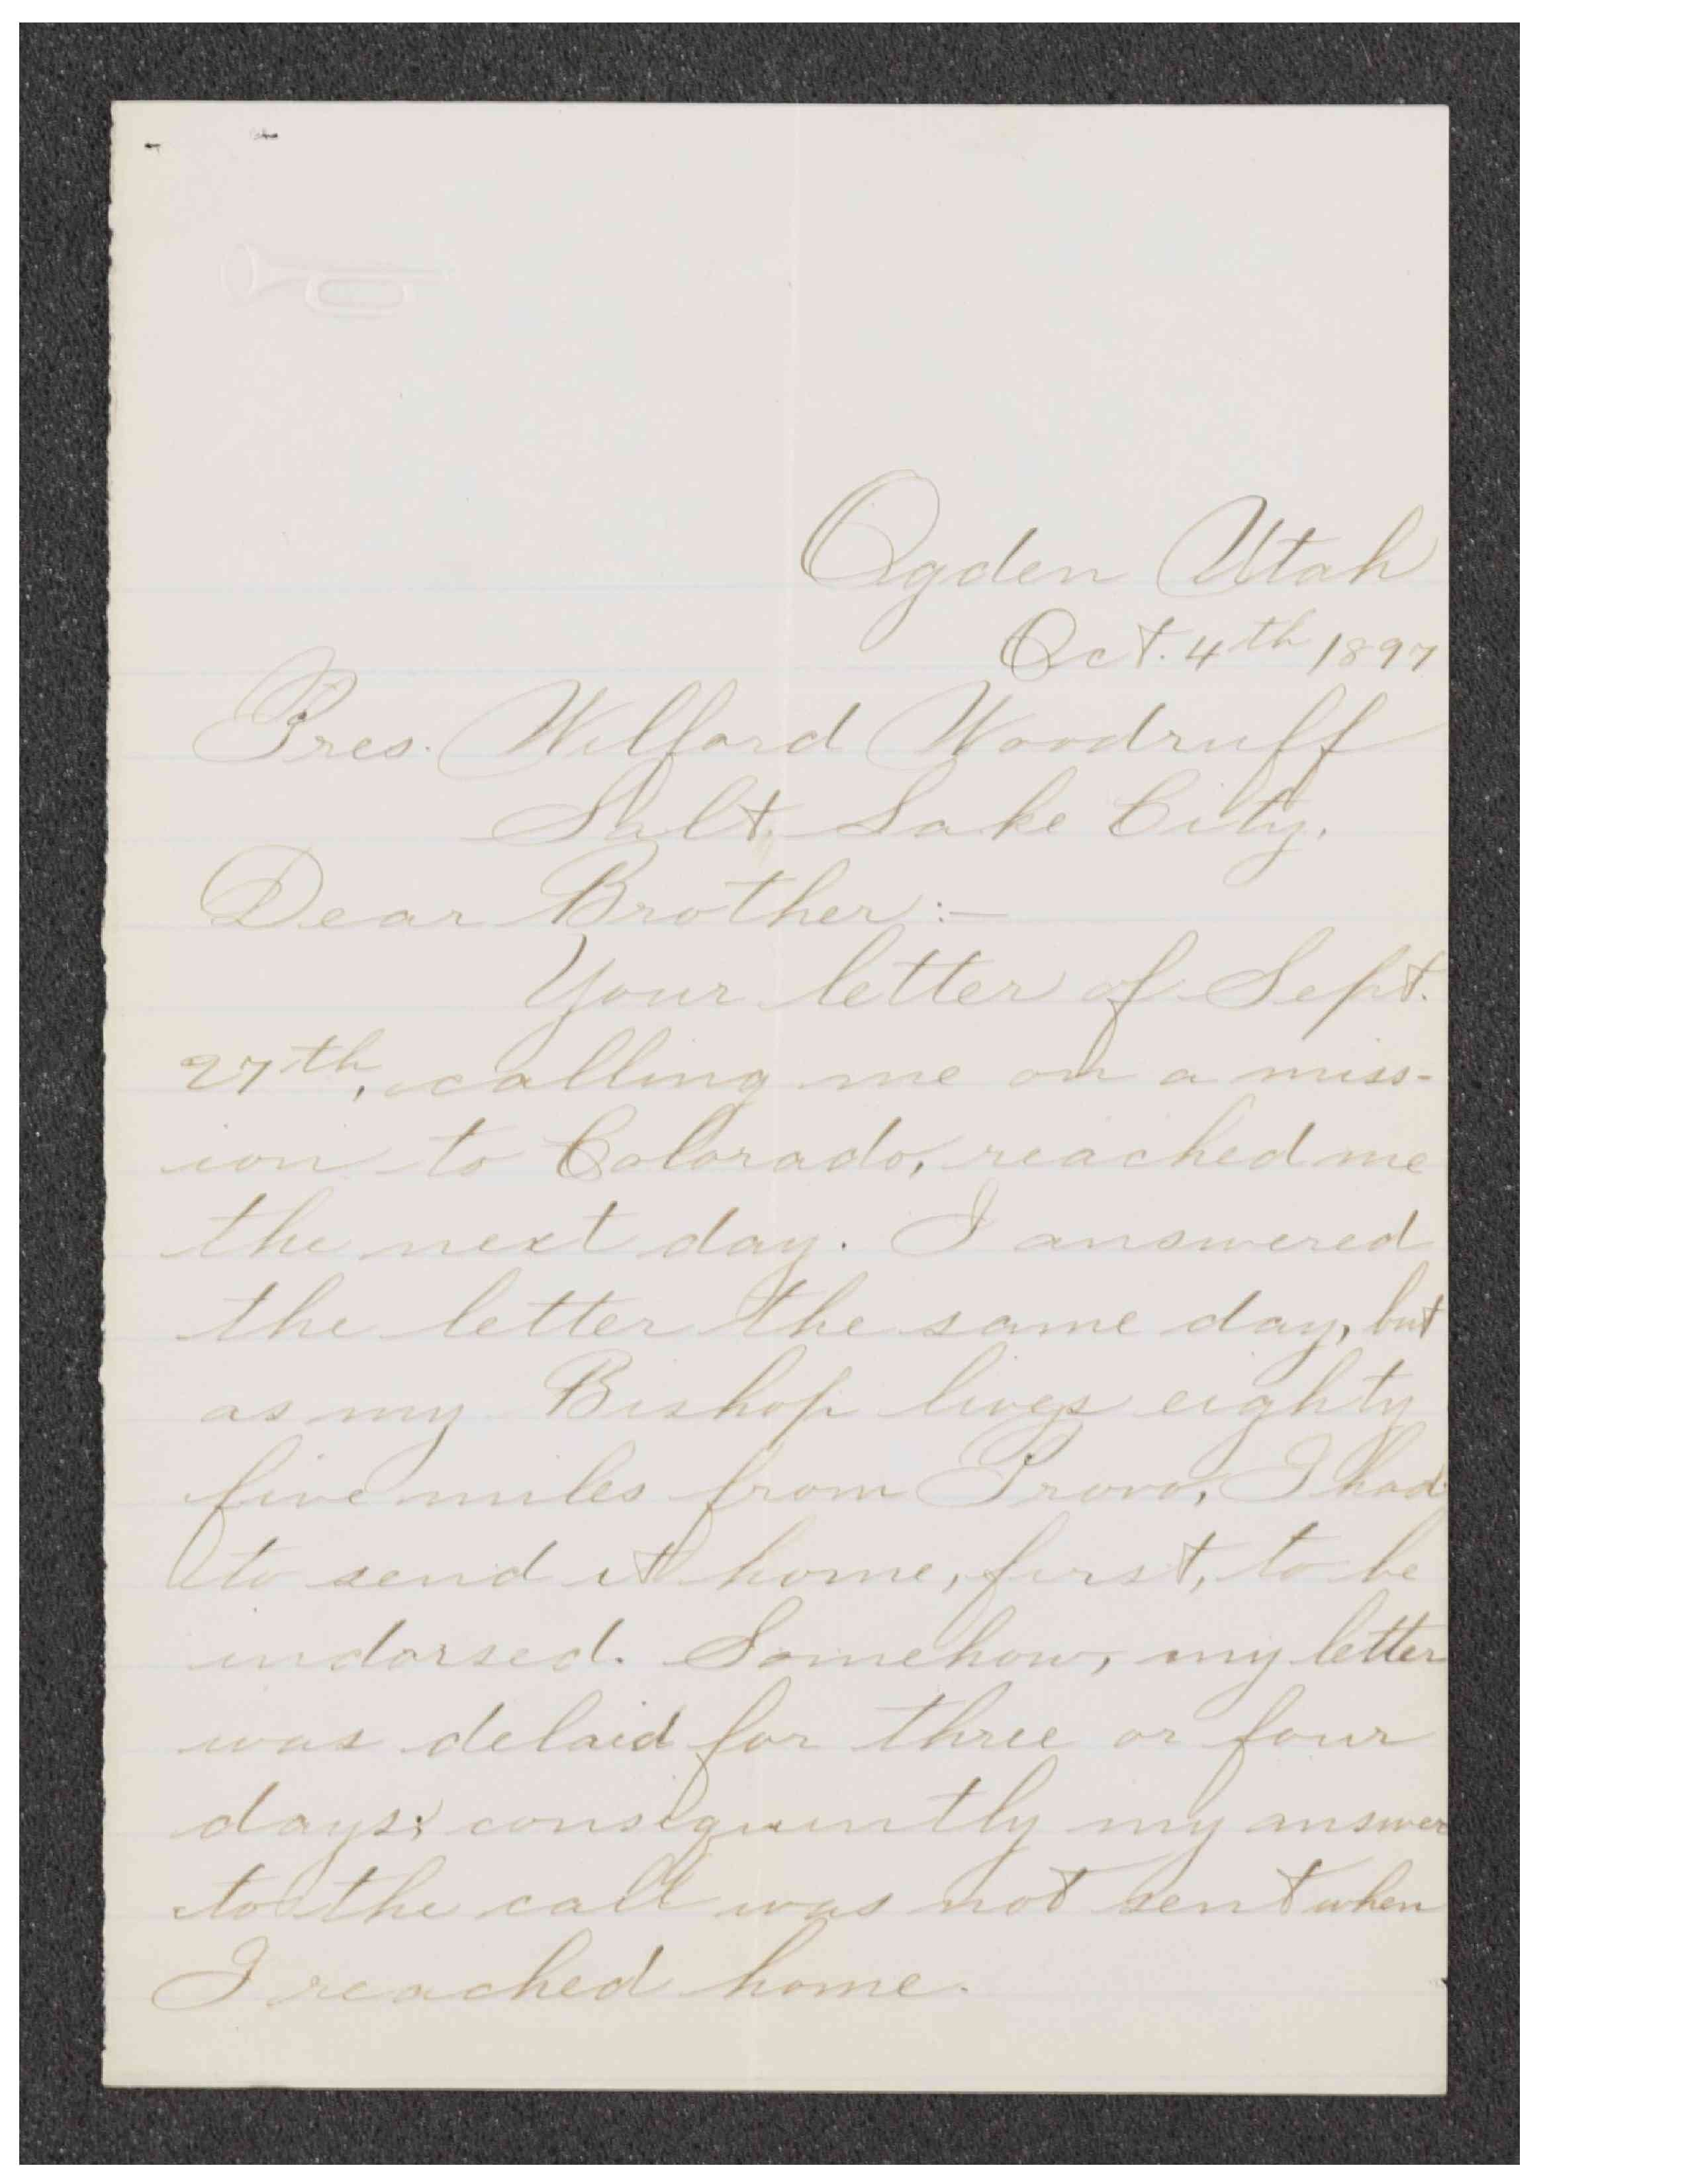 Ogden Utah
Oct. 4th 1897
Pres. Wilford Woodruff
Salt Lake City.
Dear Brother:—
Your letter of Sept.
27th, calling me on a miss-
ion to Colorado, reached me
the next day. I answered
the letter the same day, but
as my Bishop lives eighty
five miles from Provo, I had
to send it home, first, to be
indorsed. Somehow, my letter
was delaid for three or four
days; consequently my answer
to the call was not sent when
I reached home.